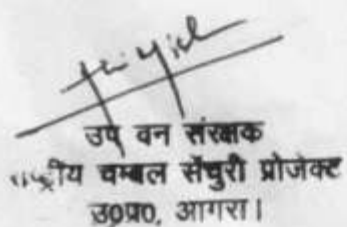 उप वन संरक्षक
राष्ट्रीय चम्बल सेंचुरी प्रोजेक्ट
उ0प्र0, आगरा।